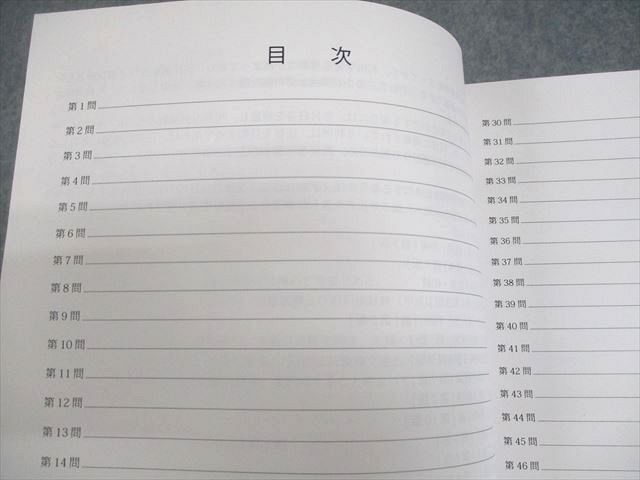 目 次
第1問
第2問
第3問
第4問
第5問
第6問
第7問
第8問
第9問
第10問
第11問
第12問
第13問
第14問
第30問
第31問
第32問
第33問
第34問
第35問
第36問
第37問
第38問
第39問
第40問
第41問
第42問
第43問
第44問
第45問
第46問